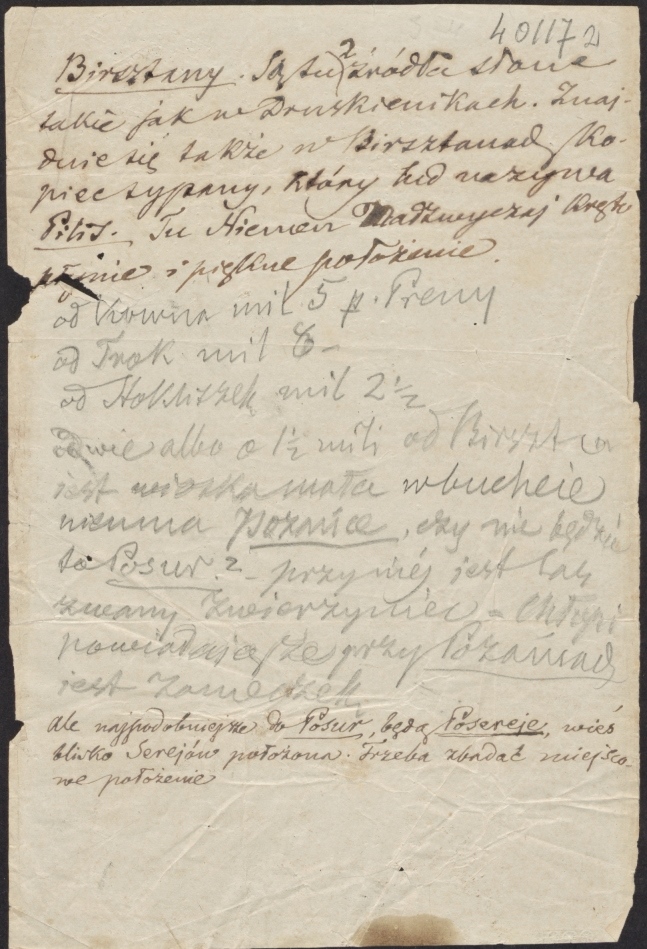 401172
Birsztany. Są tu 2 źródła słone
takie jak w Druskienikach. Znaj-
duie się także w Birsztanach Ko-
piec sypany, który lud nazywa
Pilis. Tu Niemen Nadzwyczaj kręto
płynie i piękne położenie.
od Kowna mil 5 p. Preny
od Trok mil 6 -
od Stokliszek mil 2 1/2
albo o 1 1/2 mili od Birszt
jest wioska mała w bucheie
niemna Pozańce, czy nie będzie
to Posur? - przy niéj jest las
zwany Zwierzyniec - Chłopi
powiadają że przy Pozańcach
jest Zameczek
ale najpodobniejsze do Posur, będą Posereje, wieś
blisko Serejów położona. Trzeba zbadać miejsco-
we położenie